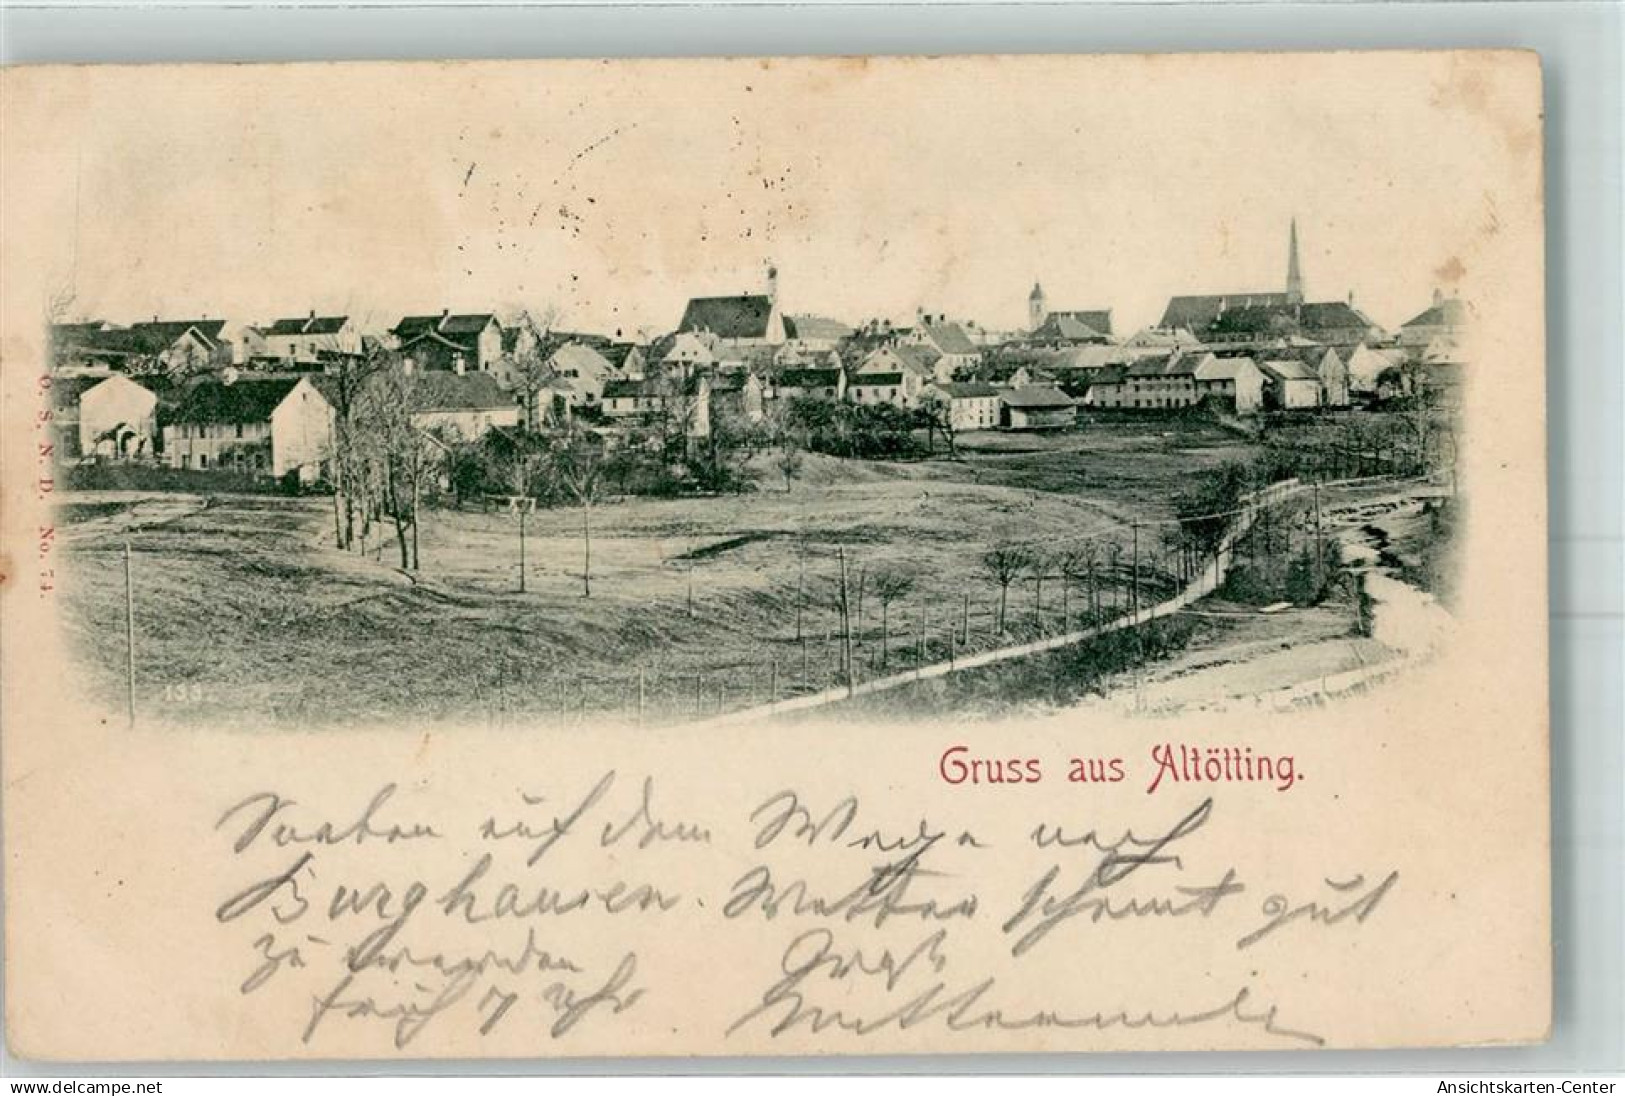 O. S. N. D. No. 74.
133.
Gruss aus Altötting.
Soeben auf dem Wege nach
Burghausen. Wetter scheint gut
zu werden
früh 7 Uhr
delcampe.net
Ansichtskarten-Center